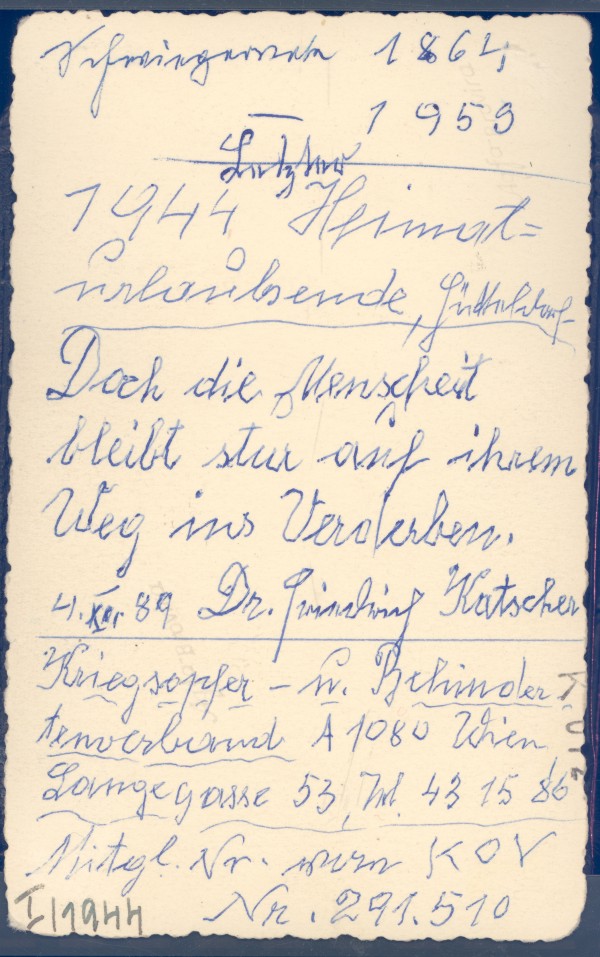 Schwiegervater 1864
– 1959
Letzter
1944 Heimat=
urlaubsende, Hütteldorf
Doch die Menscheit
bleibt stur auf ihrem
Weg ins Verderben.
4. XII. 89 Dr. Friedrich Katscher
Kriegsopfer- u. Behinder-
tenverband A 1080 Wien
Langegasse 53, Tel. 43 15 86
Mitgl. Nr. KOV
Nr. 291.510
I/1944